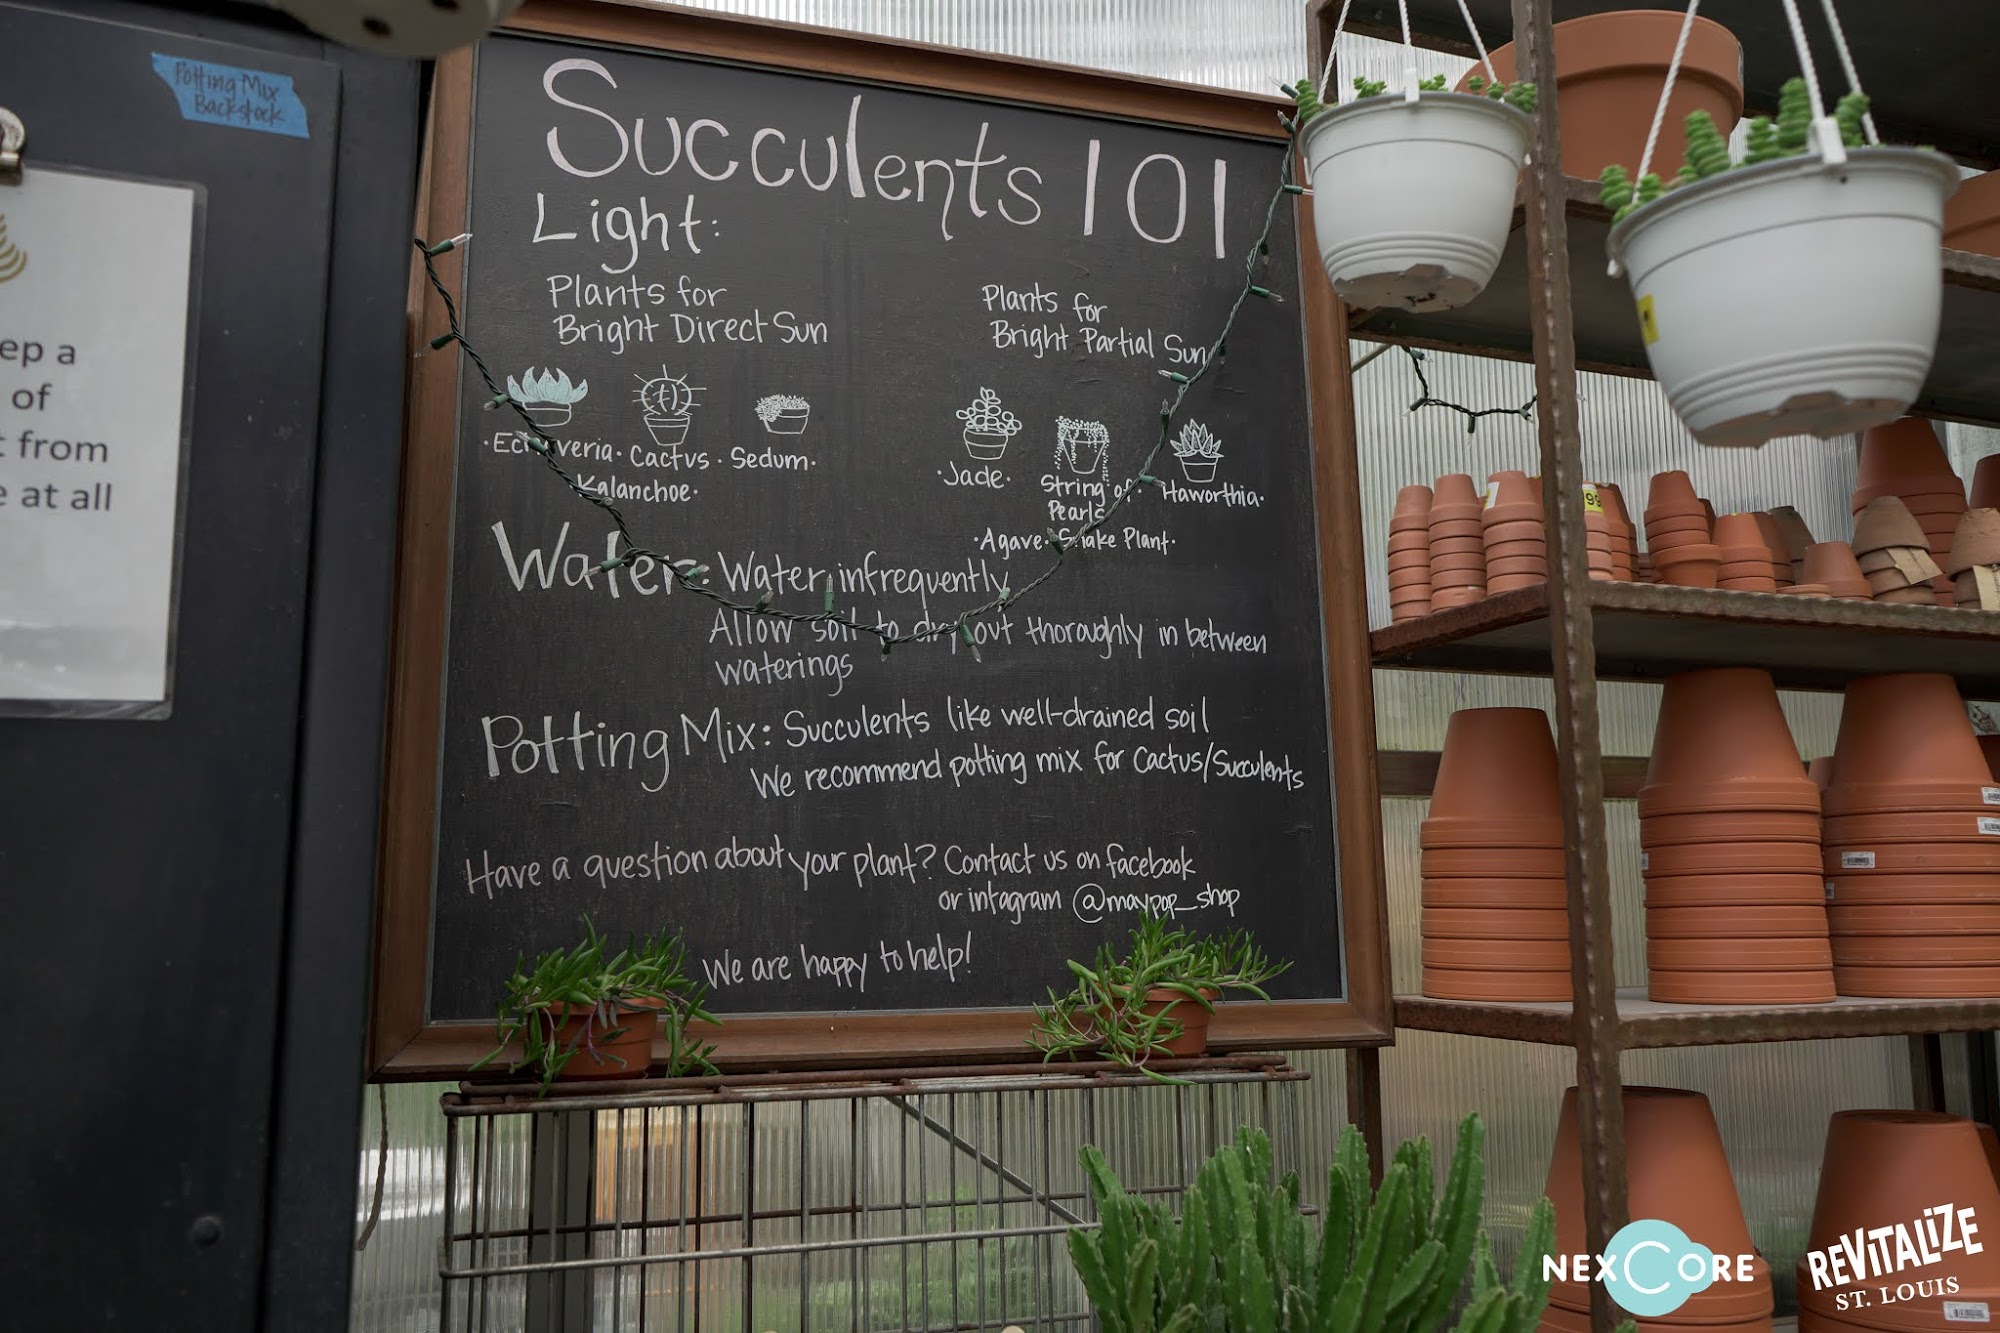 Potting Mix
Backstock
ep a
of
t from
e at all
Succulents 101
Light:
Plants for
Bright Direct Sun
·Echeveria· Cactus · Sedum·
Kalanchoe·
Plants for
Bright Partial Sun
·Jade· String of Pearls ·Haworthia·
·Agave· Snake Plant·
Water: Water infrequently
Allow soil to dry out thoroughly in between
waterings
Potting Mix: Succulents like well-drained soil
We recommend potting mix for Cactus/Succulents
Have a question about your plant? Contact us on facebook
or intagram @maypop_shop
We are happy to help!
NEXCORE
REVITALIZE
ST. LOUIS